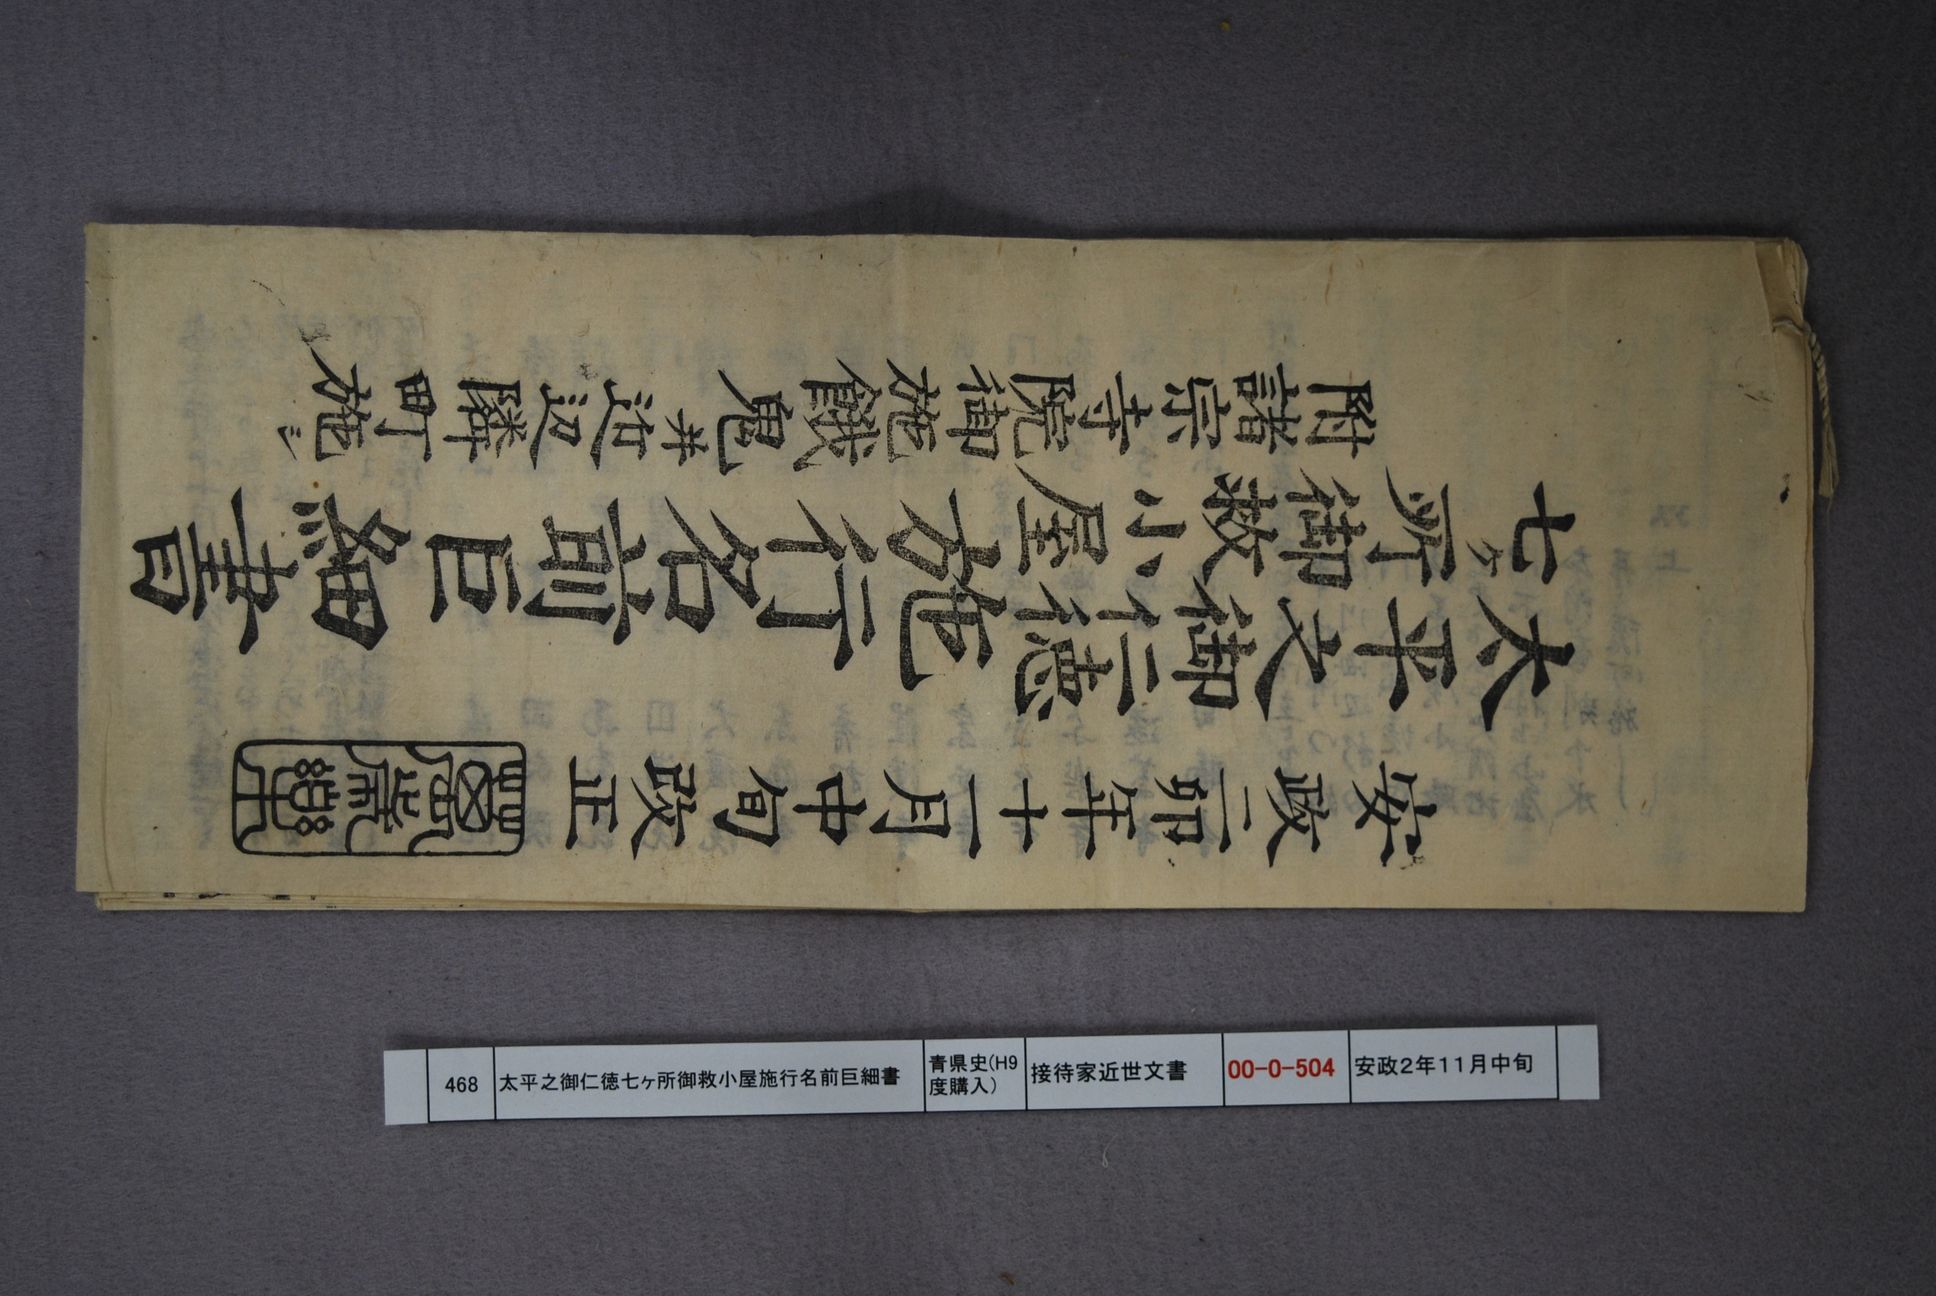 安政二卯年十一月中旬改正
太平之御仁徳
七ヶ所御救小屋
施行名前巨細書
附諸宗寺院御施餓鬼并近辺隣町施シ
468 太平之御仁徳七ヶ所御救小屋施行名前巨細書 青県史(H9度購入) 接待家近世文書 00-0-504 安政2年11月中旬